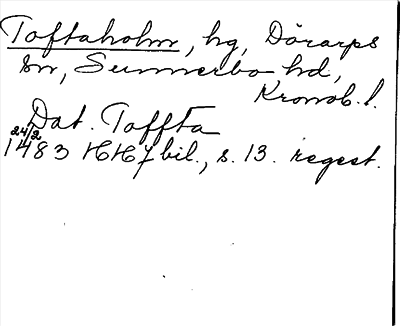 Toftaholm, hg, Dörarps
sn, Sunnerbo hd,
Kronob. l.
Dat. Toffta
24/2
1483 HH f bil., s. 13. regest.